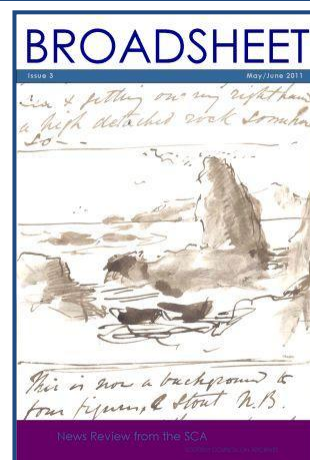 BROADSHEET
Issue 3 May/June 2011
& getting on my right han
a high detached rock somewh
so--
This is now a background to
four figures, & Stout N.B.
News Review from the SCA